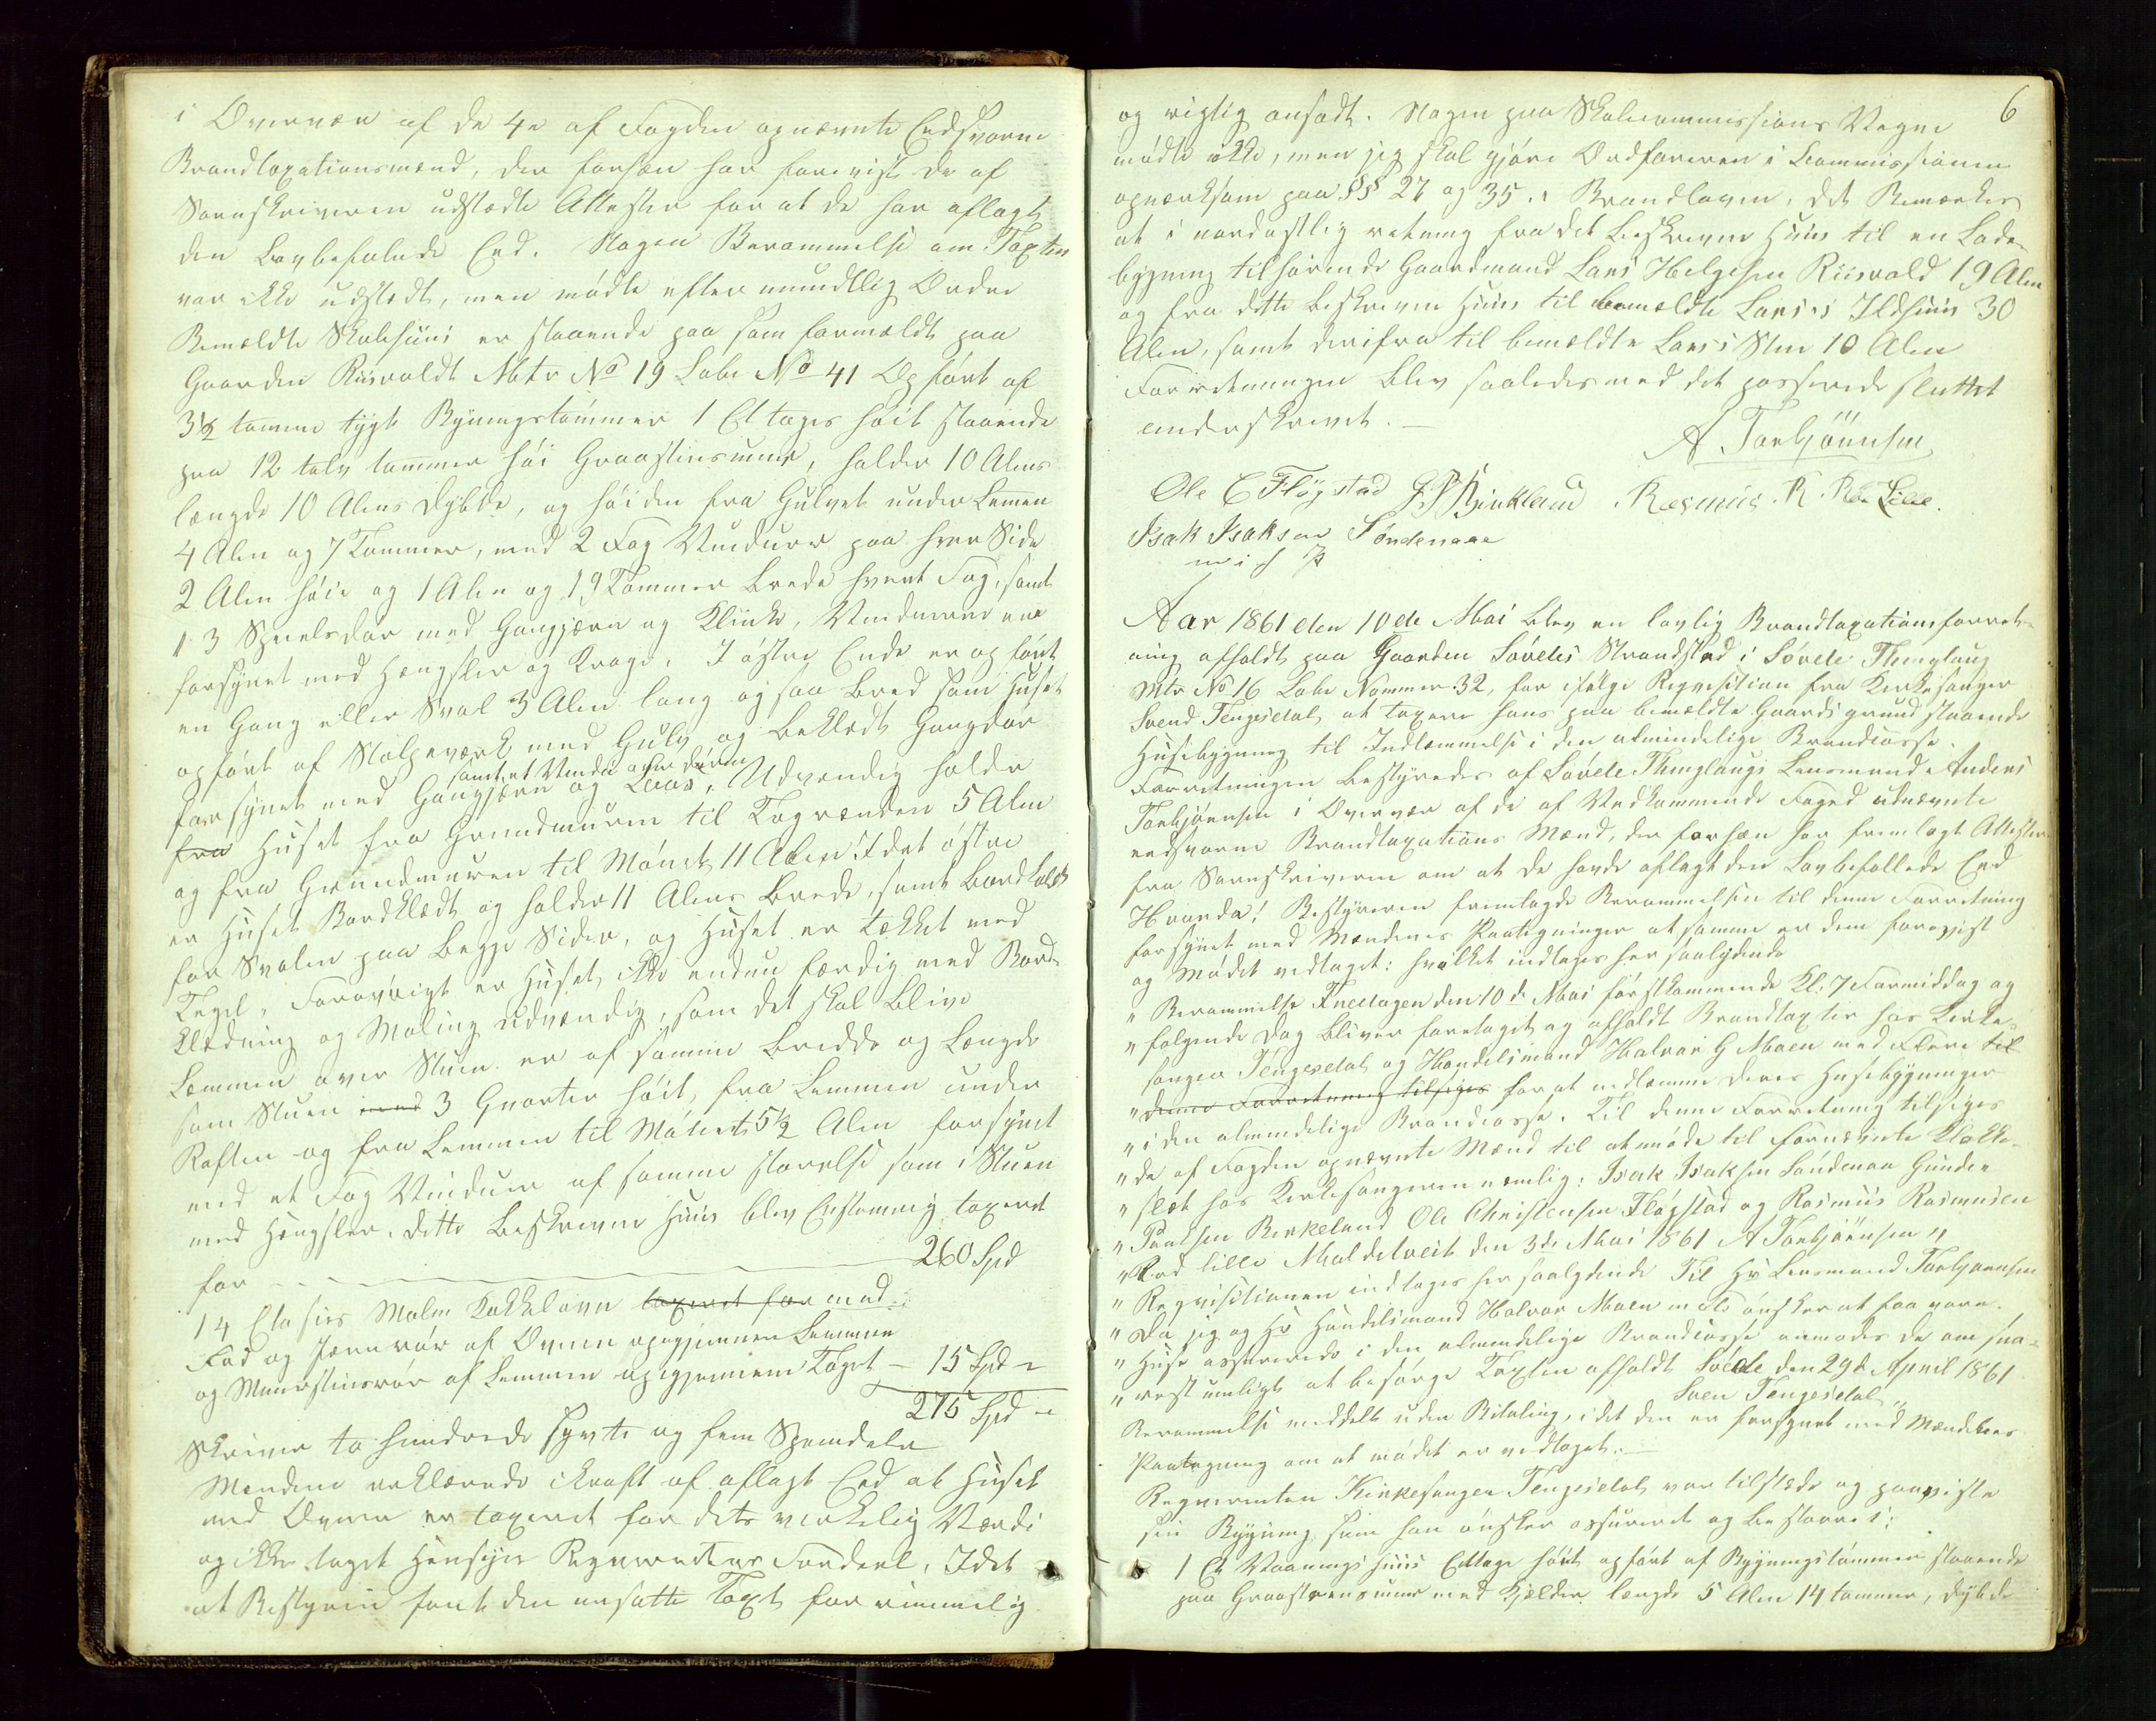 i Overvær af de 4e af Fogden opnævnte Eedsvorne
Brandtaxationsmænd, der forhen har forevist de af
Sorenskriveren udstædte Attester for at de har aflagt
den Lovbefalede Eed. Nogen Berammelse om Taxten
var ikke udstædt, men mødte efter mundtlig Ordre
Bemældte Skolehuus er staaende paa som formældt paa
Gaarden Riisvoldt Matr No 19 Løbe No 41 Opført af
3½ tomme tygt Bygningstømmer 1 Etages høit staaende
paa 12 tolv tommer høi Graasteensmuur, holder 10 Alens
længde 10 Alens Dybde, og høiden fra Gulvet under Lemen
4 Alen og 7 Tommer, med 2 Fag Vinduer paa hver Side
2 Alen høie og 1 Alen og 19 Tommer brede hvert Fag, samt
1 3 Speilsdør med Gangjern og Klinke, Vinduerne ere
forsynet med Hængsler og Kroge. I østre Ende er opført
en Gang eller Sval 3 Alen lang og saa bred som Huset
opført af Stolpeværk med Gulv og beklædt Gangdør
samt et Vindu over døren
forsynet med Gangjern og Laas, Udvendig holder
fra Huset fra Grundmuren til Tagrenden 5 Alen
og fra Grundmuren til Mønet 11 Alen I det østre
er Huset Bordklædt og holder 11 Alens Brede, samt Bordklædt
for Svalen paa begge Sider, og Huset er tækket med
Tegel, Forøvrigt er Huset ikke endnu færdig med Bord-
klædning og Maling udvendig, som det skal blive
Lemmen over Stuen er af samme bredde og Længde
som Stuen med 3 Qvarter høit, fra Lemmen under
Raften og fra Lemmen til Mønet 5½ Alen forsynet
med et Fag Vinduer af samme størrelse som i Stuen
med Hængsler. dette beskrevne Huus blev Eenstemmig taxeret
for 260 Spd
1 4 Etasies Malm Kakkelovn taxeret for med
Fod og Jernrør af Ovnen opigjennem Lemmen
og Muursteensrør af Lemmen opigjennem Taget – 15 Spd –
275 Spd –
Skriver to hundrede syvti og fem Speciedaler
Mændene erklærede i kraft af aflagt Eed at Huset
med Ovnen er taxeret for dets virkelig Værdi
og ikke taget Hensyn Reqvirentens Fordeel, Idet
at Bestyren fant den ansatte Taxt for rimmelig
6
og rigtig ansadt. Nogen paa Skolecommissions Vegne
mødte ikke, men jeg skal gjøre Ordføreren i Commissionen
opmærksom paa §§ 27 og 35. i Brandloven, det Bemærkes
at i nordøstlig retning fra det beskrevne Huus til en Lade-
bygning tilhørende Gaardmand Lars Helgesen Riisvold 19 Alen
og fra dette beskrevne Huus til bemældte Lars's Ildhuus 30
Alen, samt derifra til bemældte Lars's Stue 10 Alen
Forretningen blev saaledes med det passerede sluttet
underskrevet. –
A. Torbjörnsen
Ole C Flögstad J. P. Birkeland Rasmus. R. Røe Lille.
Isak Isaksen Søndenaae
m i f P
Aar 1861 den 10de Mai blev en lovlig Brandtaxationsforret-
ning afholdt paa Gaarden Søvdes Strandsted i Søvde Thinglaug
Mtr No 16 Løbe Nommer 32, for ifølge Reqvisition fra Kirkesanger
Svend Tengesdal at taxere hans paa bemældte Gaards grund staaende
Husebygning til Indlemmelse i den almindelige Brandcasse.
Forretningen bestyredes af Søvde Thinglaugs Lensmand Anders
Torbjørnsen i Overvær af de af Vedkommende Foged udnævnte
eedsvorne Brandtaxations Mænd, der forhen har fremlagt Attester
fra Sorenskriveren om at de havde aflagt den Lovbefallede Eed
Hvorda! Bestyreren fremlagde Berammelsen til denne Forretning
forsynet med Mændenes Paategninger at samme er dem forevist
og Mødet vedtaget: hvilket indtages her saalydende
" Berammelse Fredagen den 10de Mai førstkommende Kl. 7 Formiddag og
" følgende Dag bliver foretaget og afholdt Brandtaxter hos Kirke-
sanger Tengesdal og Handelsmand Halvor G Moen med Flere til
" denne Forretning tilsiges for at indlemme deres Husebygninger
" i den almindelige Brandcasse. Til denne Forretning tilsiges
" de af Fogden opnævnte Mænd til at møde til fornævnte Klokke-
" slæt hos Kirkesangeren nemlig: Isak Isaksen Søndenaa Gunder
" Paulsen Birkeland Ole Christensen Fløgstad og Rasmus Rasmusen
" Røe lille Maldetveit den 3de Mai 1861 A Torbjørnsen "
" Reqvisitionen indtages her saalydende Til Hr Lensmand Torbjørnsen
" Da jeg og Hr Handelsmand Halvor Moen m Fl ønsker at faa vore
" Huse assurerede i den almindelige Brandcasse anmodes De om sna-
" rest muligt at besørge Taxten afholdt Søvde den 29de April 1861
Sven Tengesdal "
Berammelse meddelt uden Betaling, idet den er forsynet med Mændenes
Paategning om at mødet er vedtaget. –
Reqvirenten Kirkesanger Tengesdal var tilstæde og paaviste
sin Bygning som han ønsker assureret og bestaar i:
1 Et Vaaningshuus Ettage høit opført af Bygningstømmer staaende
paa Graasteensmuur med Kjelder længde 5 Alen 14 tommer, dybde